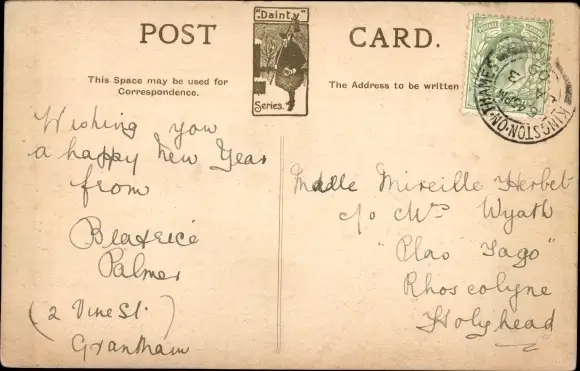 POST CARD.
"Dainty"
Series.
This Space may be used for
Correspondence.
The Address to be written
KINGSTON-ON-THAMES
Wishing you
a happy New Year
from
Beatrice
Palmer
(2 Vine St.)
Grantham
Mdlle Mireille Herbet
c/o Mrs Wyatt
"Plas Iago"
Rhoscolyne
Holyhead